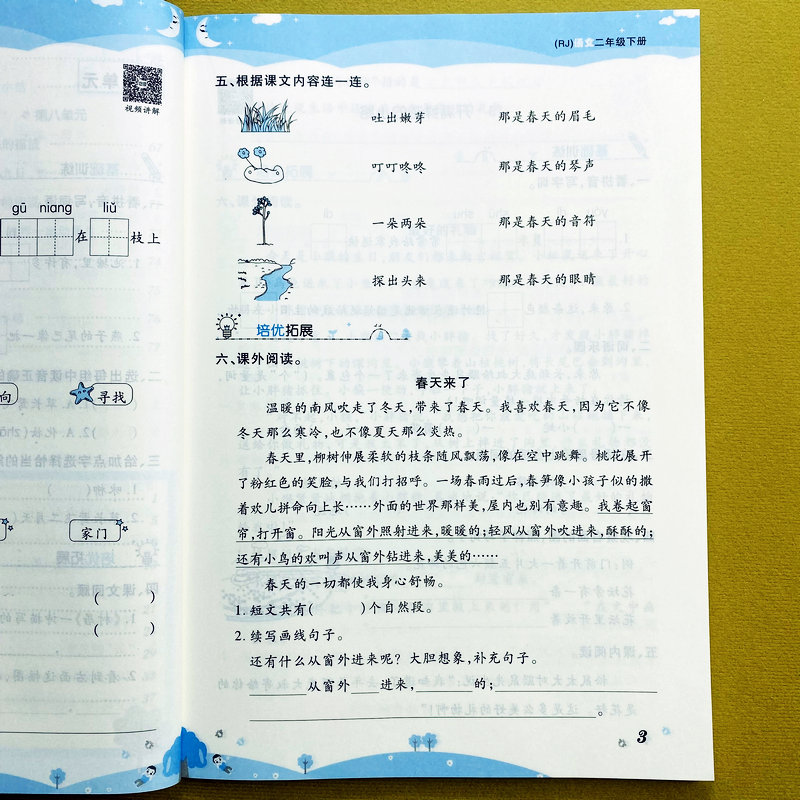 视频讲解
gū niang liǔ
在 枝上
向
寻找
家门
( )
( )
(RJ)语文二年级下册
五、根据课文内容连一连。
吐出嫩芽 那是春天的眉毛
叮叮咚咚 那是春天的琴声
一朵两朵 那是春天的音符
探出头来 那是春天的眼睛
培优拓展
六、课外阅读。
春天来了
温暖的南风吹走了冬天,带来了春天。我喜欢春天,因为它不像
冬天那么寒冷,也不像夏天那么炎热。
春天里,柳树伸展柔软的枝条随风飘荡,像在空中跳舞。桃花展开
了粉红色的笑脸,与我们打招呼。一场春雨过后,春笋像小孩子似的撒
着欢儿拼命向上长……外面的世界那样美,屋内也别有意趣。我卷起窗
帘,打开窗。阳光从窗外照射进来,暖暖的;轻风从窗外吹进来,酥酥的;
还有小鸟的欢叫声从窗外钻进来,美美的……
春天的一切都使我身心舒畅。
1.短文共有( )个自然段。
2.续写画线句子。
还有什么从窗外进来呢?大胆想象,补充句子。
______从窗外____进来,________的;____________
______________________________。
3